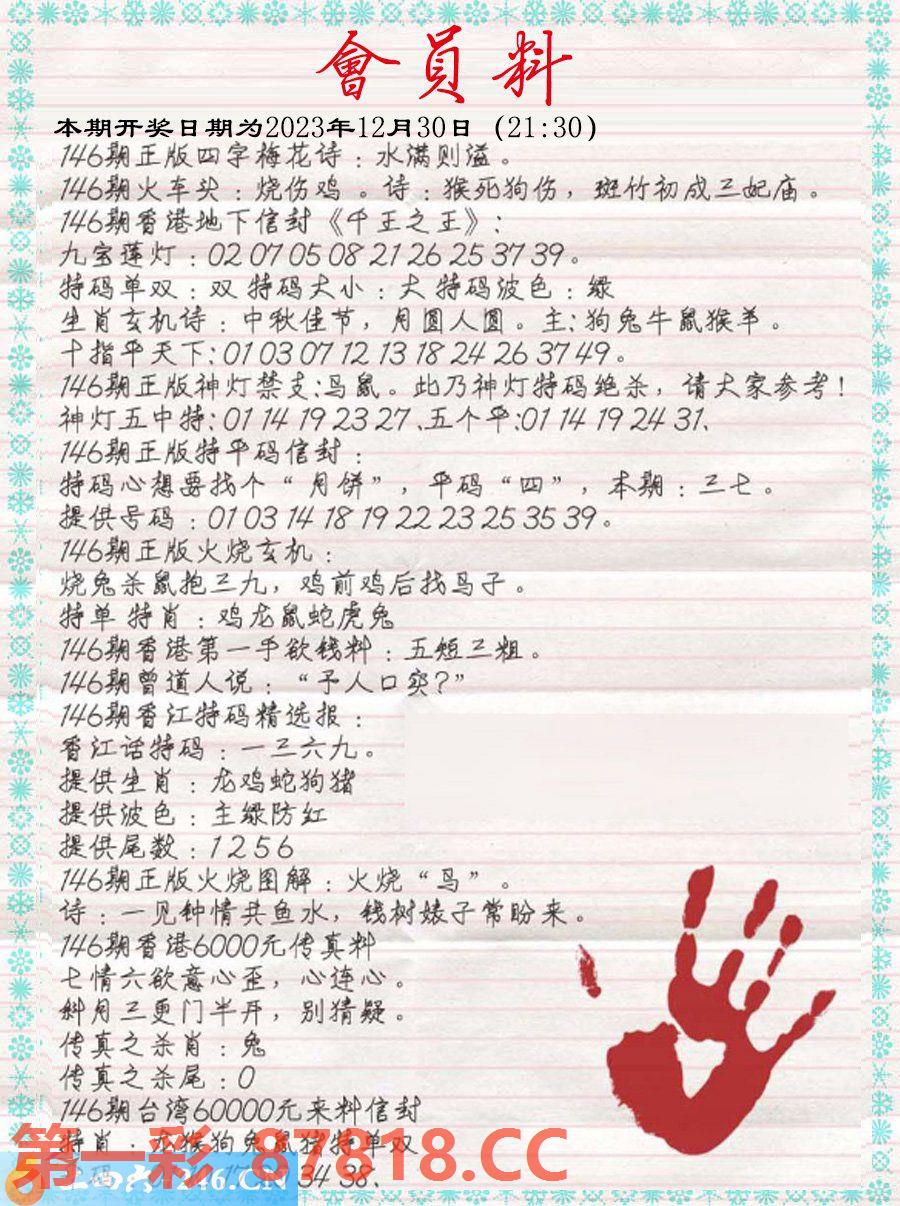 會員料
本期开奖日期为2023年12月30日（21:30）
146期正版四字梅花诗：水满则溢。
146期火车头：烧伤鸡 。诗：猴死狗伤，斑竹初成三妃庙。
146期香港地下信封《千王之王》:
九宝莲灯：02 07 05 08 21 26 25 37 39。
特码单双：双 特码大小：大 特码波色：绿
生肖玄机诗：中秋佳节，月圆人圆。主:狗兔牛鼠猴羊。
十指平天下:01 03 07 12 13 18 24 26 37 49。
146期正版神灯禁支:鸟鼠。此乃神灯特码绝杀，请大家参考！
神灯五中特:01 14 19 23 27 .五个平:01 14 19 24 31.
146期正版特平码信封：
特码心想要找个“月饼”，平码“四”，本期：三七。
提供号码：01 03 14 18 19 22 23 25 35 39。
146期正版火烧玄机：
烧兔杀鼠抱三九，鸡前鸡后找马子。
特单 特肖：鸡龙鼠蛇虎兔
146期香港第一手欲钱料：五短三粗。
146期曾道人说：“予人口实?”
146期香江特码精选报：
香江话特码：一三六九。
提供生肖：龙鸡蛇狗猪
提供波色：主绿防红
提供尾数：1 2 5 6
146期正版火烧图解：火烧“鸟”。
诗：一见钟情共鱼水，钱树婊子常盼来。
146期香港6000元传真料
七情六欲意心歪，心连心。
斜月三更门半开，别猜疑。
传真之杀肖：兔
传真之杀尾：0
146期台湾60000元来料信封
特肖：龙猴狗兔鼠猪特单双
第一彩 87818.CC
246.CN
34 38.